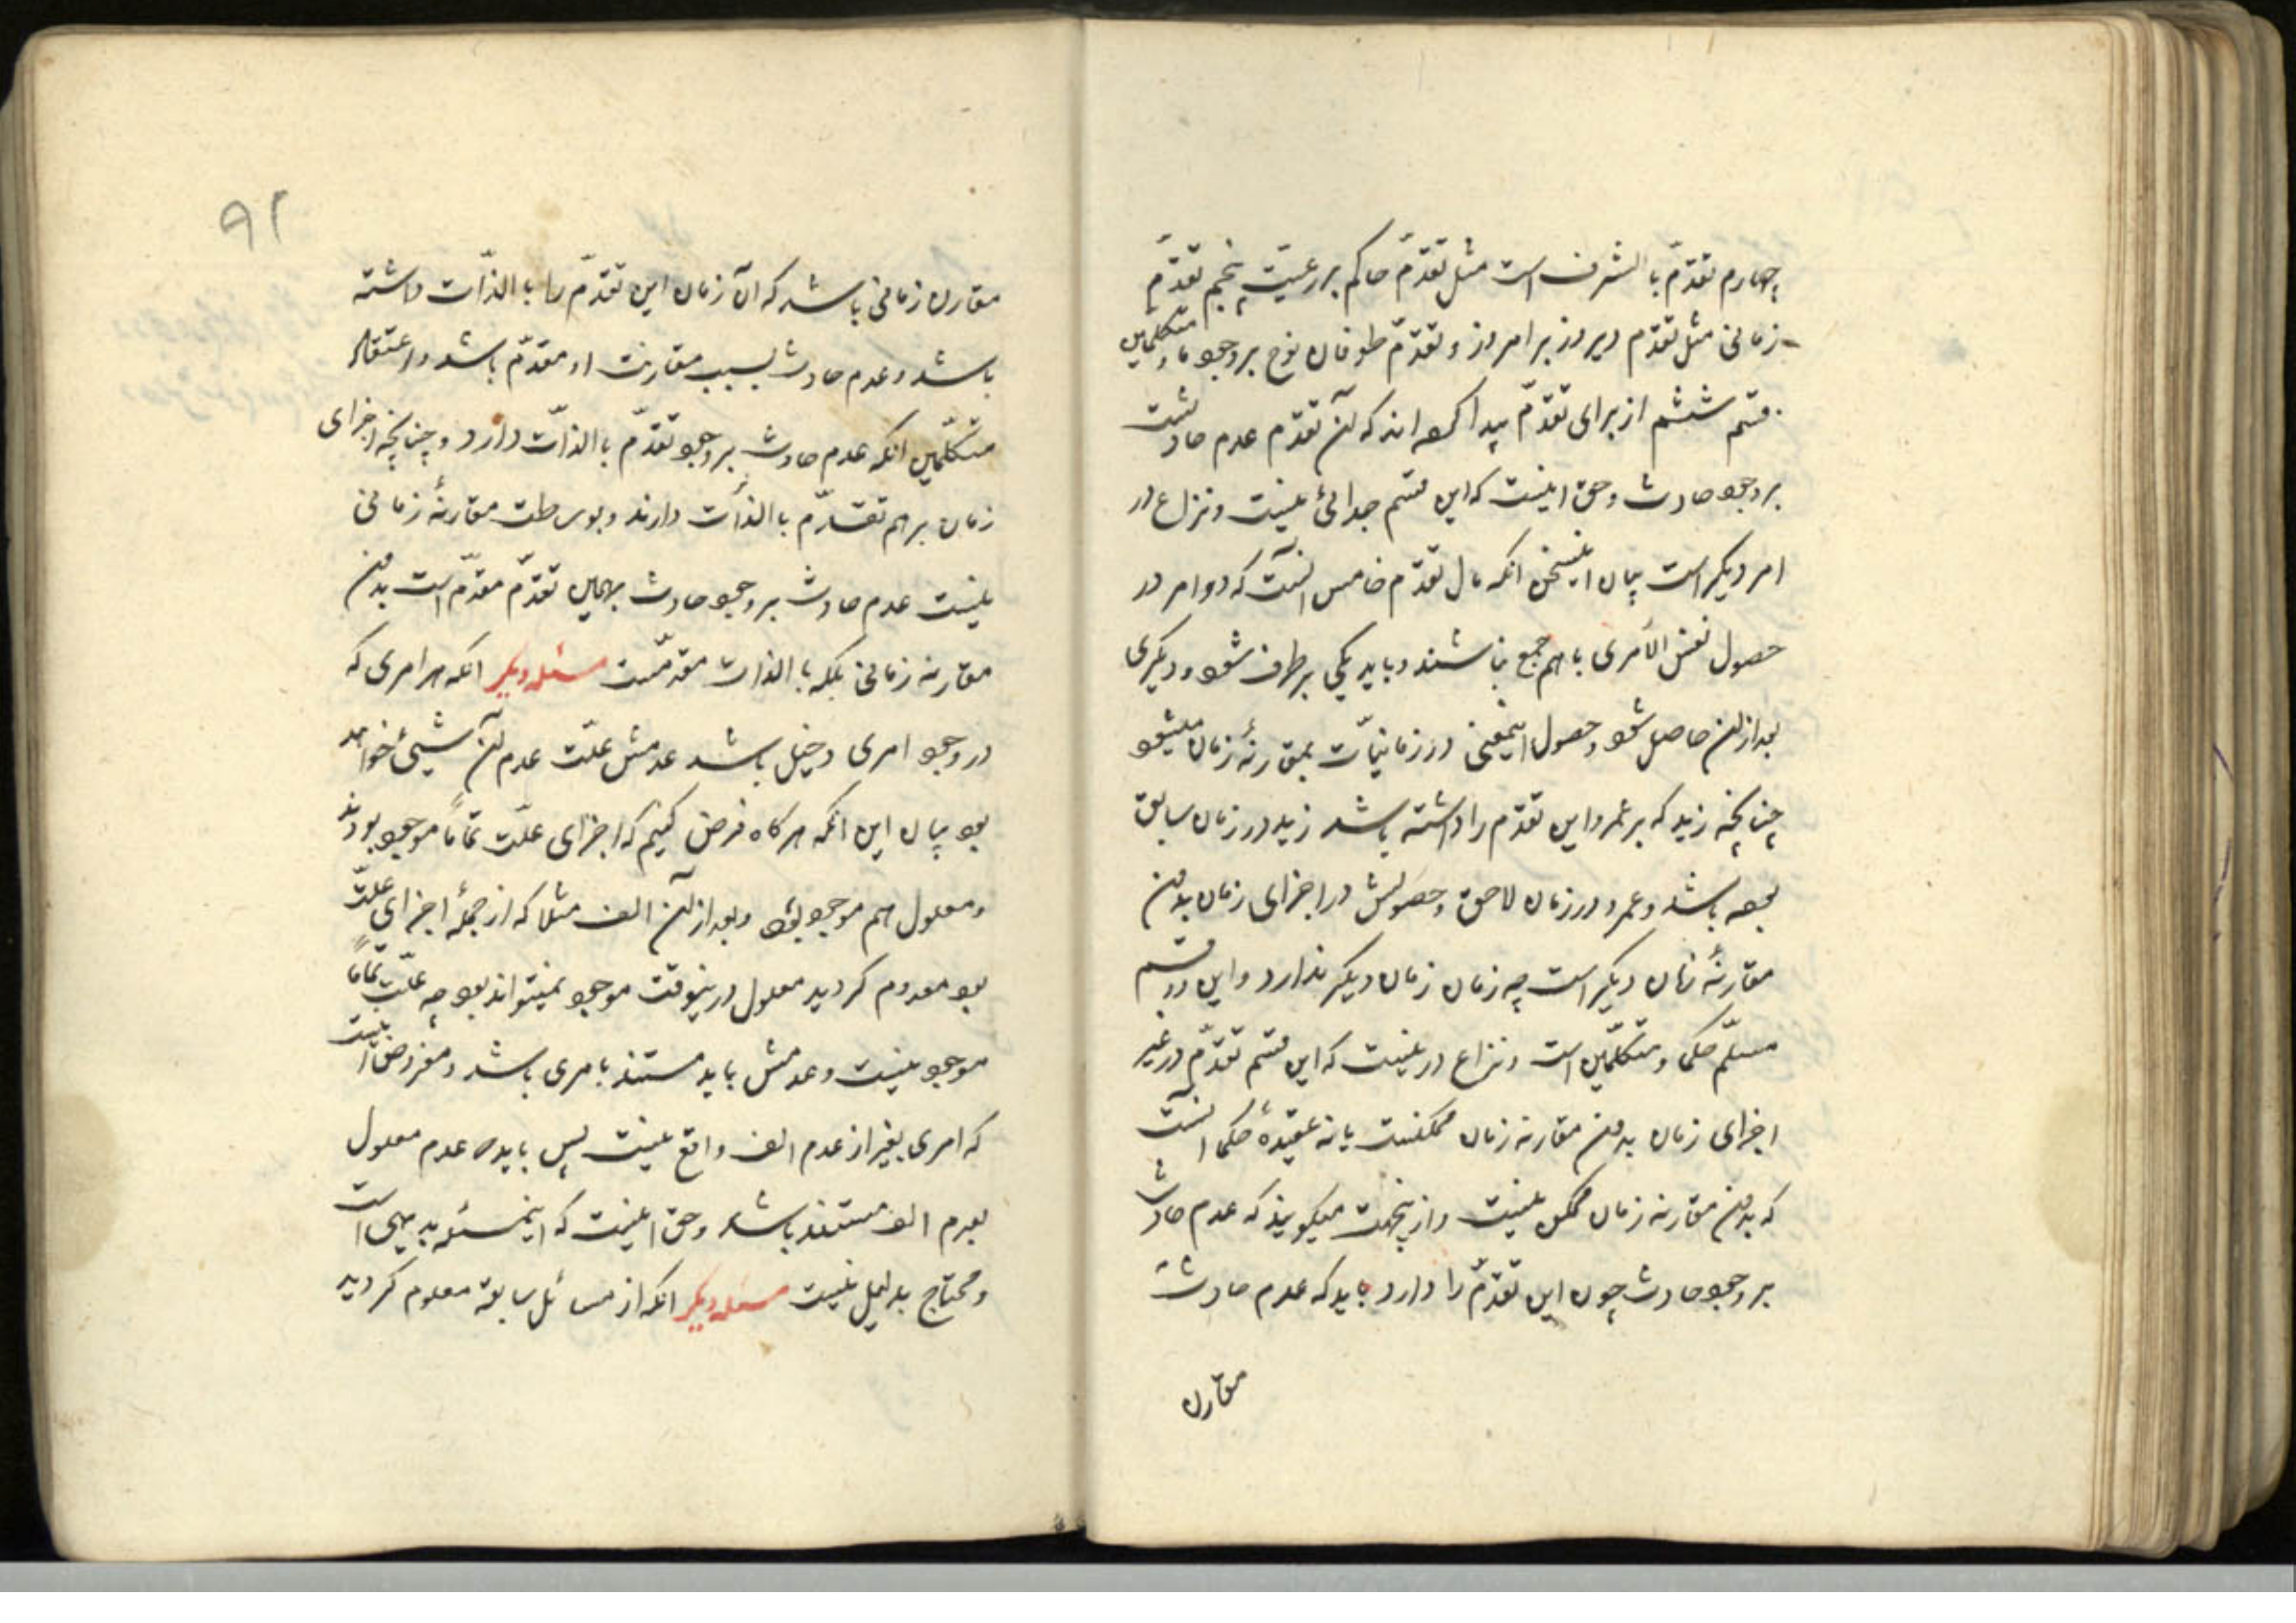 چهارم تقدّم بالشرف است مثل تقدّم حاکم بر رعیّت پنجم تقدّم
زمانی مثل تقدّم دیروز بر امروز و تقدّم طوفان نوح بر وجود ما و متکلمین
قسم ششم از برای تقدّم پیدا کرده اند که آن تقدّم عدم حادثست
بر وجود حادث و حق اینست که این قسم جدائی نیست و نزاع در
امر دیگر است بیان اینسخن انکه مال تقدّم خامس انستکه دو امر در
حصول نفس الأمری باهم جمع نباشند و باید یکی بر طرف شود و دیگری
بعد از آن حاصل شود و حصول اینمعنی در زمانیّات بمقارنۀ زمان میشود
چنانچه زید که بر عمرو این تقدّم را داشته باشد زید در زمان سابق
بوده باشد و عمرو در زمان لاحق و حصولش در اجزای زمان بدون
مقارنۀ زمان دیگر است چه زمان زمان دیگر ندارد و این دو قسم
مسلّم حکما و متکلّمین است و نزاع در نیست که این قسم تقدّم در غیر
اجزای زمان بدون مقارنه زمان ممکنست یا نه عقیدۀ حکما انست
که بدون مقارنه زمان ممکن نیست و از ینجهت میکویند که عدم حادث
بر وجود حادث چون این تقدّم را دارد باید که عدم حادث
مقارن
۹۲
مقارن زمانی باشد که آن زمان این تقدّم را باالذّات داشته
باشد و عدم حادث بسبب مقارنت او مقدّم باشد و اعتقاد
متکلّمین انکه عدم حادث بر وجود تقدّم باالذّات دارد و چنانچه اجزای
زمان بر هم تقدّم باالذّات دارند و بوساطت مقارنۀ زمانی
نیست عدم حادث بر وجود حادث بهمین تقدّم مقدّم است بدون
مقارنه زمانی بلکه باالذات مقدّمست مسئله دیکر انکه هر امری که
در وجود امری دخیل باشد عدمش علّت عدم آن شیئ خواهد
بود بیان این انکه هر کاه فرض کنیم که اجزای علّت تماماً موجود بودند
و معلول هم موجود بود و بعد از آن الف مثلا که از جملۀ اجزای علّت
بود معدوم کردید معلول درینوقت موجود نمیتواند بود چه علّت تماماً
موجود نیست و عدمش باید مستند بامری باشد و مفروض اینست
که امری بغیر از عدم الف واقع نیست پس باید که عدم معلول
بعدم الف مستند باشد و حق اینست که اینمسئله بدیهی است
و محتاج بدلیل نیست مسئله دیکر انکه از مسائل سابقه معلوم کردید